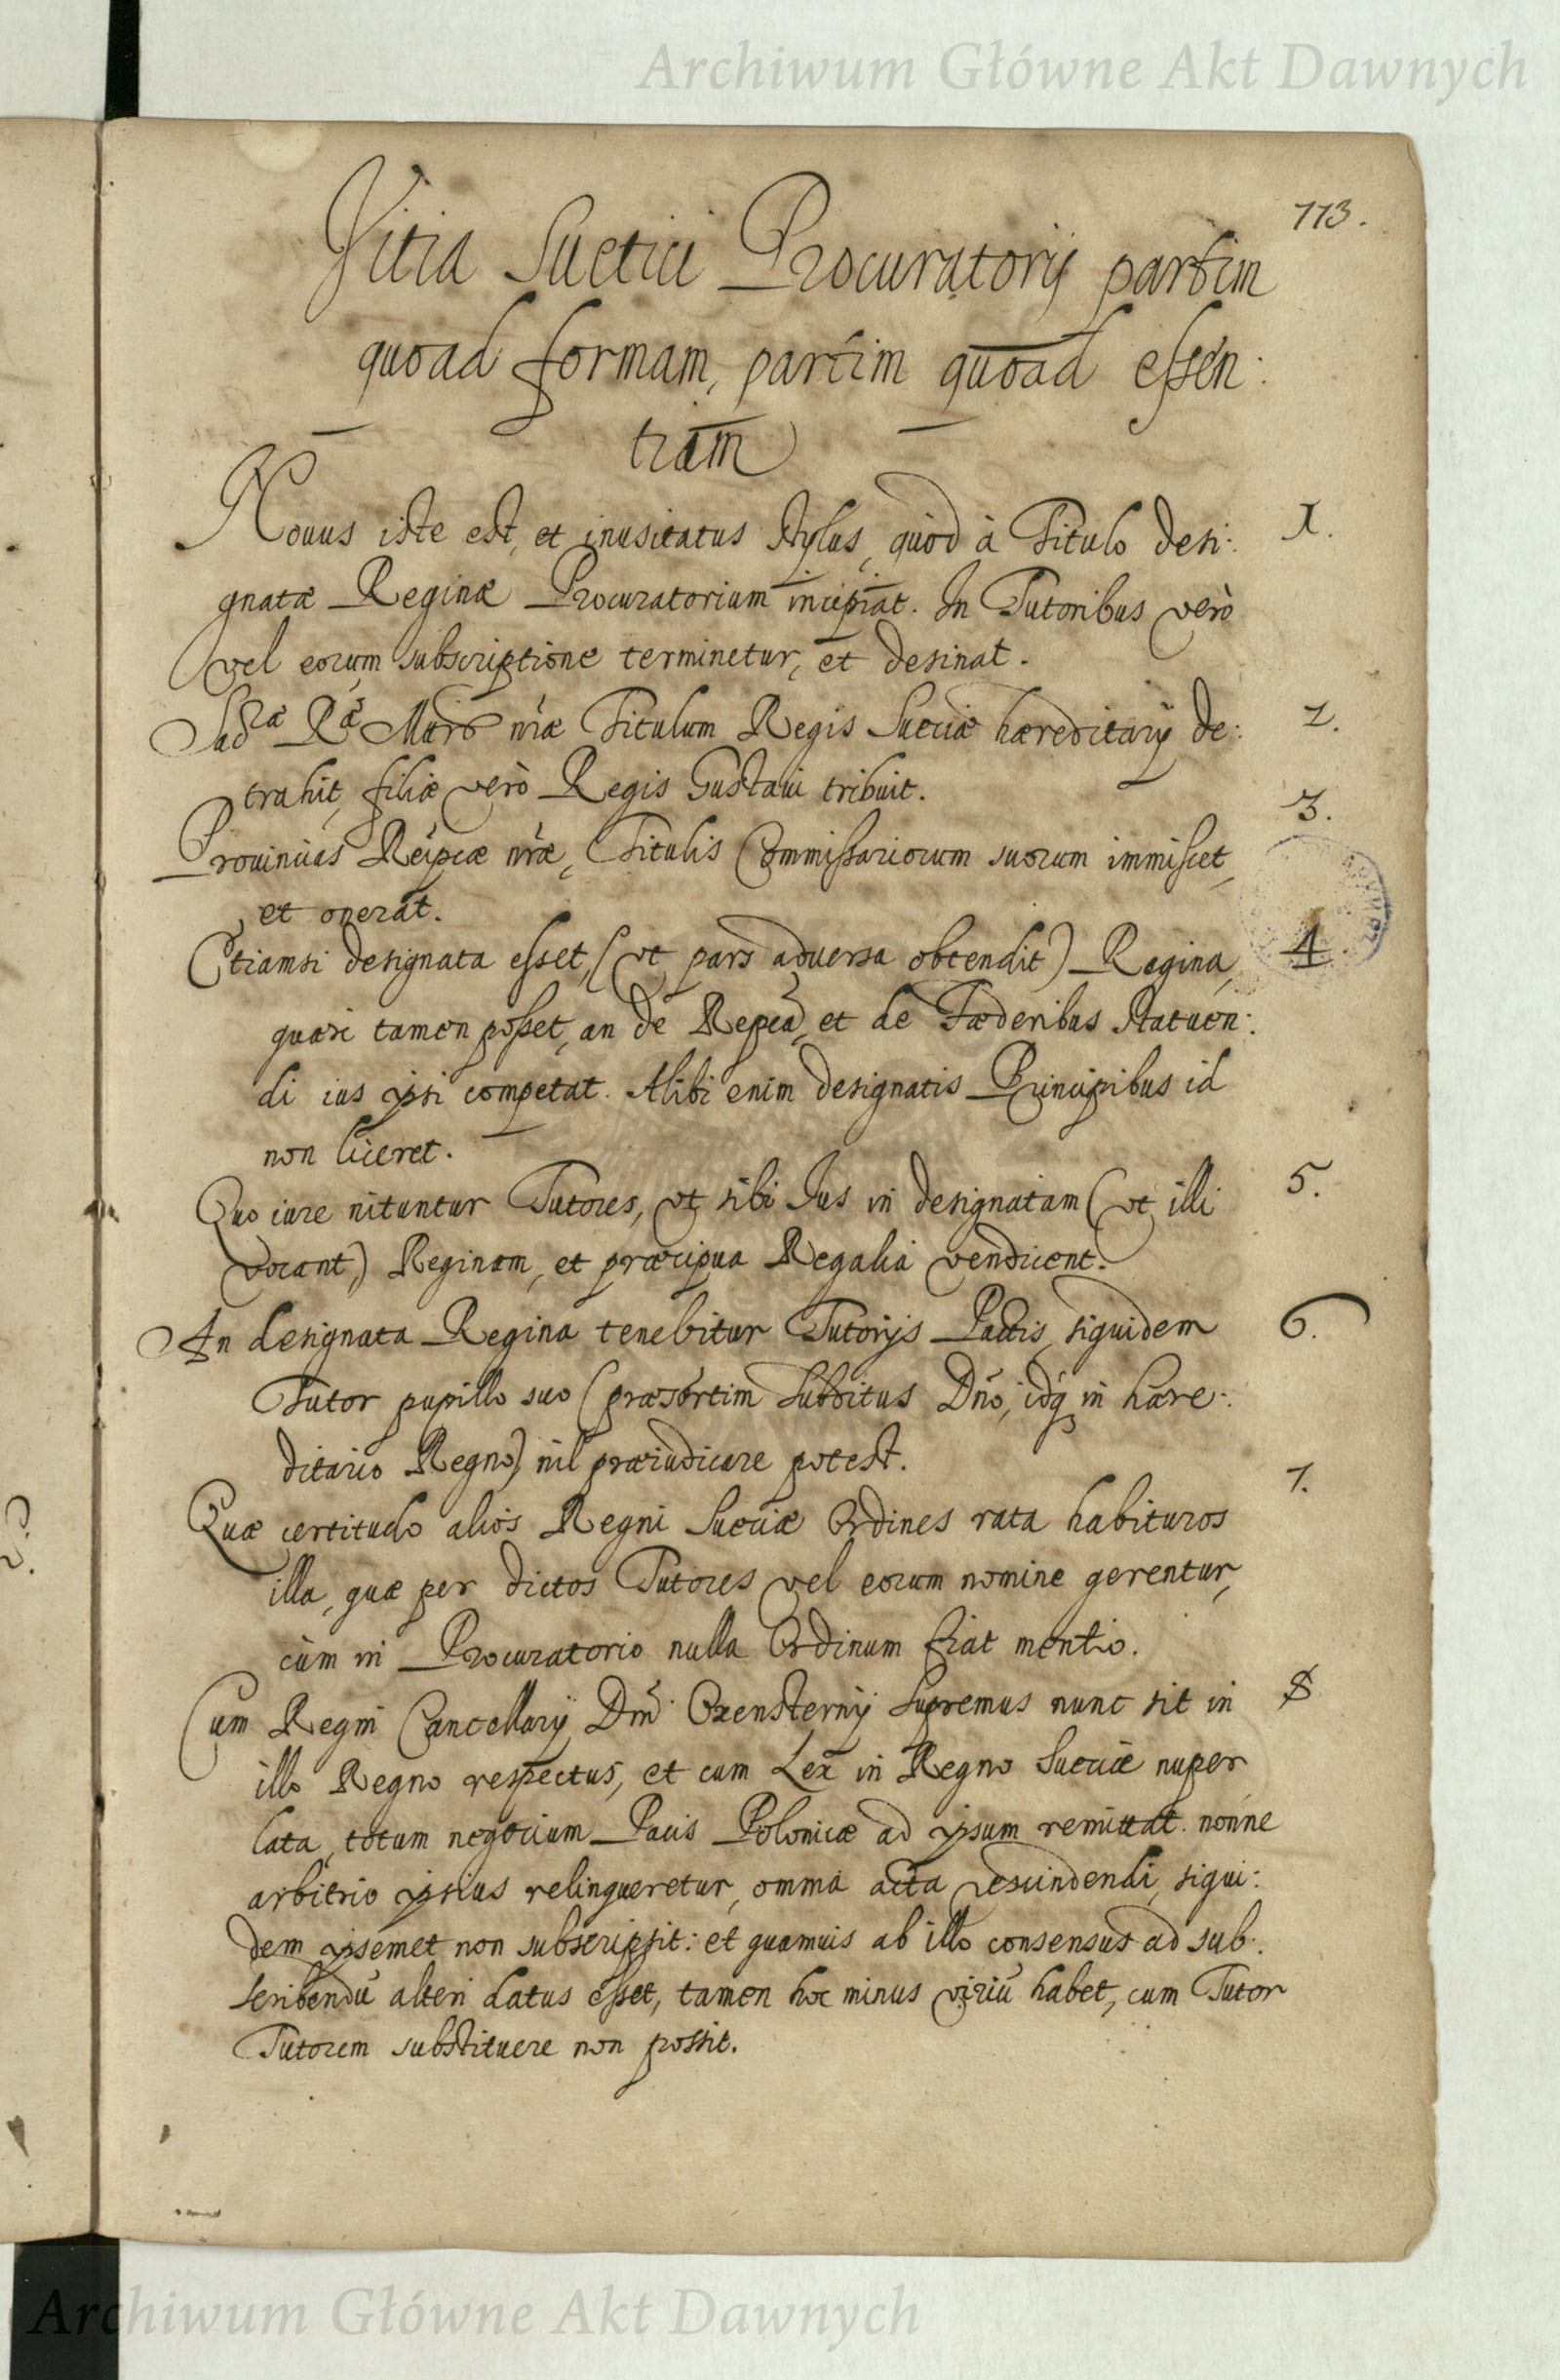 Archiwum Główne Akt Dawnych
113.
Vitia Suetici Procuratorij partim
quoad formam, partim quoad essen:
tiam
Nouus iste est, et inusitatus stylus, quòd à Titulo desi: 1.
gnatæ Reginæ Procuratorium incipiat. In Tutoribus verò
vel eorum subscriptione terminetur, et desinat.
Sacræ Ræ Mattis nræ Titulum Regis Sueciæ hæreditarij de: 2.
trahit, filiæ verò Regis Gustaui tribuit.
Prouincias Reipcæ nræ, Titulis Commissariorum suorum immiscet, 3.
et onerat.
Etiamsi designata esset, (vt pars aduersa obtendit) Regina, 4
quæri tamen posset, an de Repca, et de Fæderibus statuen:
di ius ipsi competat. Alibi enim designatis Principibus id
non liceret.
Quo iure nituntur Tutores, vt sibi Ius in designatam (vt illi 5.
vocant) Reginam, et præcipua Regalia vendicent.
An designata Regina tenebitur Tutorijs Pactis, siquidem 6.
Tutor pupillo suo (præsertim subditus Dño, idq in hære:
ditario Regno) nil præiudicare potest.
Quæ certitudo alios Regni Sueciæ Ordines rata habituros 7.
illa, quæ per dictos Tutores vel eorum nomine gerentur,
cùm in Procuratorio nulla Ordinum fiat mentio.
Cum Regni Cancellarij Dni Oxensternij supremus nunc sit in 8
illo Regno respectus, et cum Lex in Regno Sueciæ nuper
lata, totum negocium Pacis Polonicæ ad ipsum remittat. nonne
arbitrio ipsius relinqueretur, omnia acta rescindendi, siqui:
dem ipsemet non subscripsit: et quamuis ab illo consensus ad sub:
scribendũ alteri datus esset, tamen hoc minus viriũ habet, cum Tutor
Tutorem substituere non possit.
Archiwum Główne Akt Dawnych